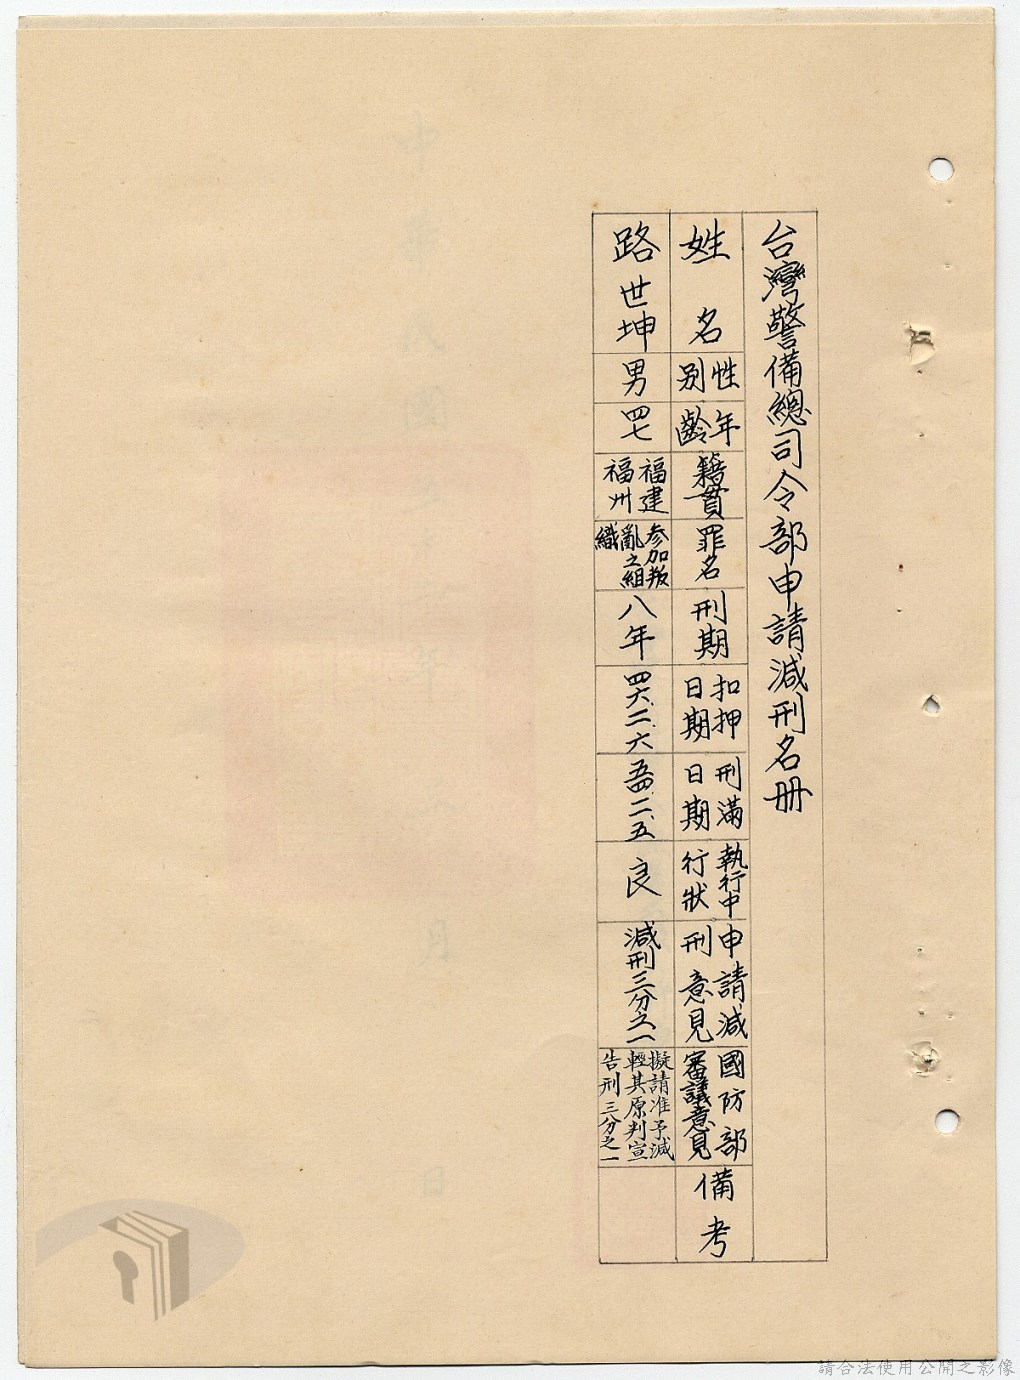 台灣警備總司令部申請減刑名册
姓名
性別
年齡
籍貫
罪名
刑期
扣押日期
刑滿日期
執行中行狀
申請減刑意見
國防部審議意見
備考
路世坤
男
四七
福建福州
參加叛亂之組織
八年
四六、二、六
五四、二、五
良
減刑三分之一
擬請准予減輕其原判宣告刑三分之一
請合法使用公開之影像